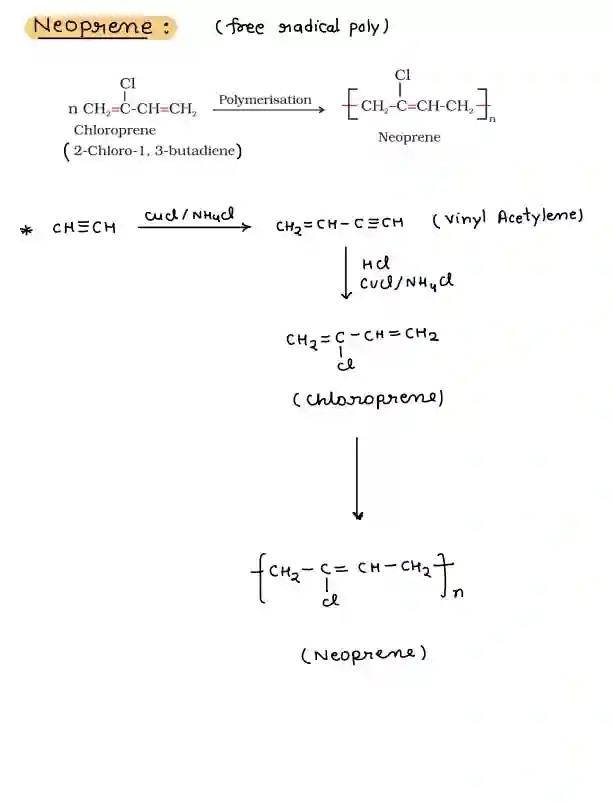 Neoprene : (free radical poly)
Cl Cl
n CH₂=C-CH=CH₂ Polymerisation [CH₂-C=CH-CH₂]n
Chloroprene Neoprene
(2-Chloro-1, 3-butadiene)
* CH≡CH CuCl/NH4Cl CH2=CH-C≡CH (Vinyl Acetylene)
HCl
CuCl/NH4Cl
CH2=C-CH=CH2
Cl
(Chloroprene)
[CH2-C=CH-CH2]n
Cl
(Neoprene)